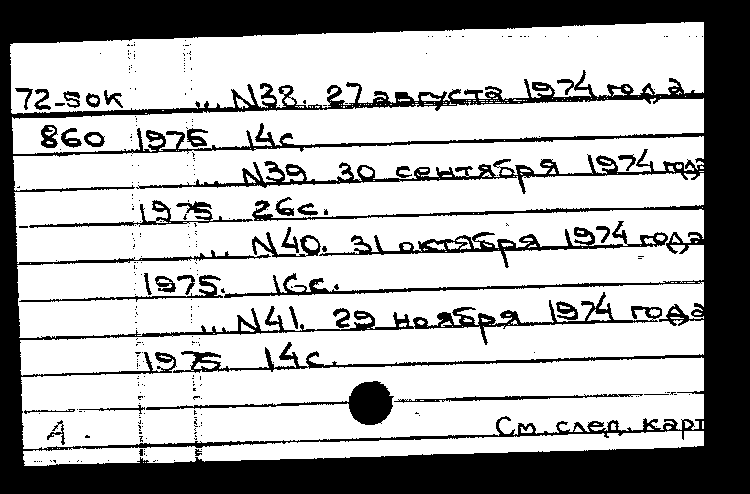 72-50к ... N38. 27 августа 1974 года.
860 1975. 14с.
... N39. 30 сентября 1974 года
1975. 26с.
... N40. 31 октября 1974 года
1975. 16с.
... N41. 29 ноября 1974 года
1975. 14с.
А. См. след. карт